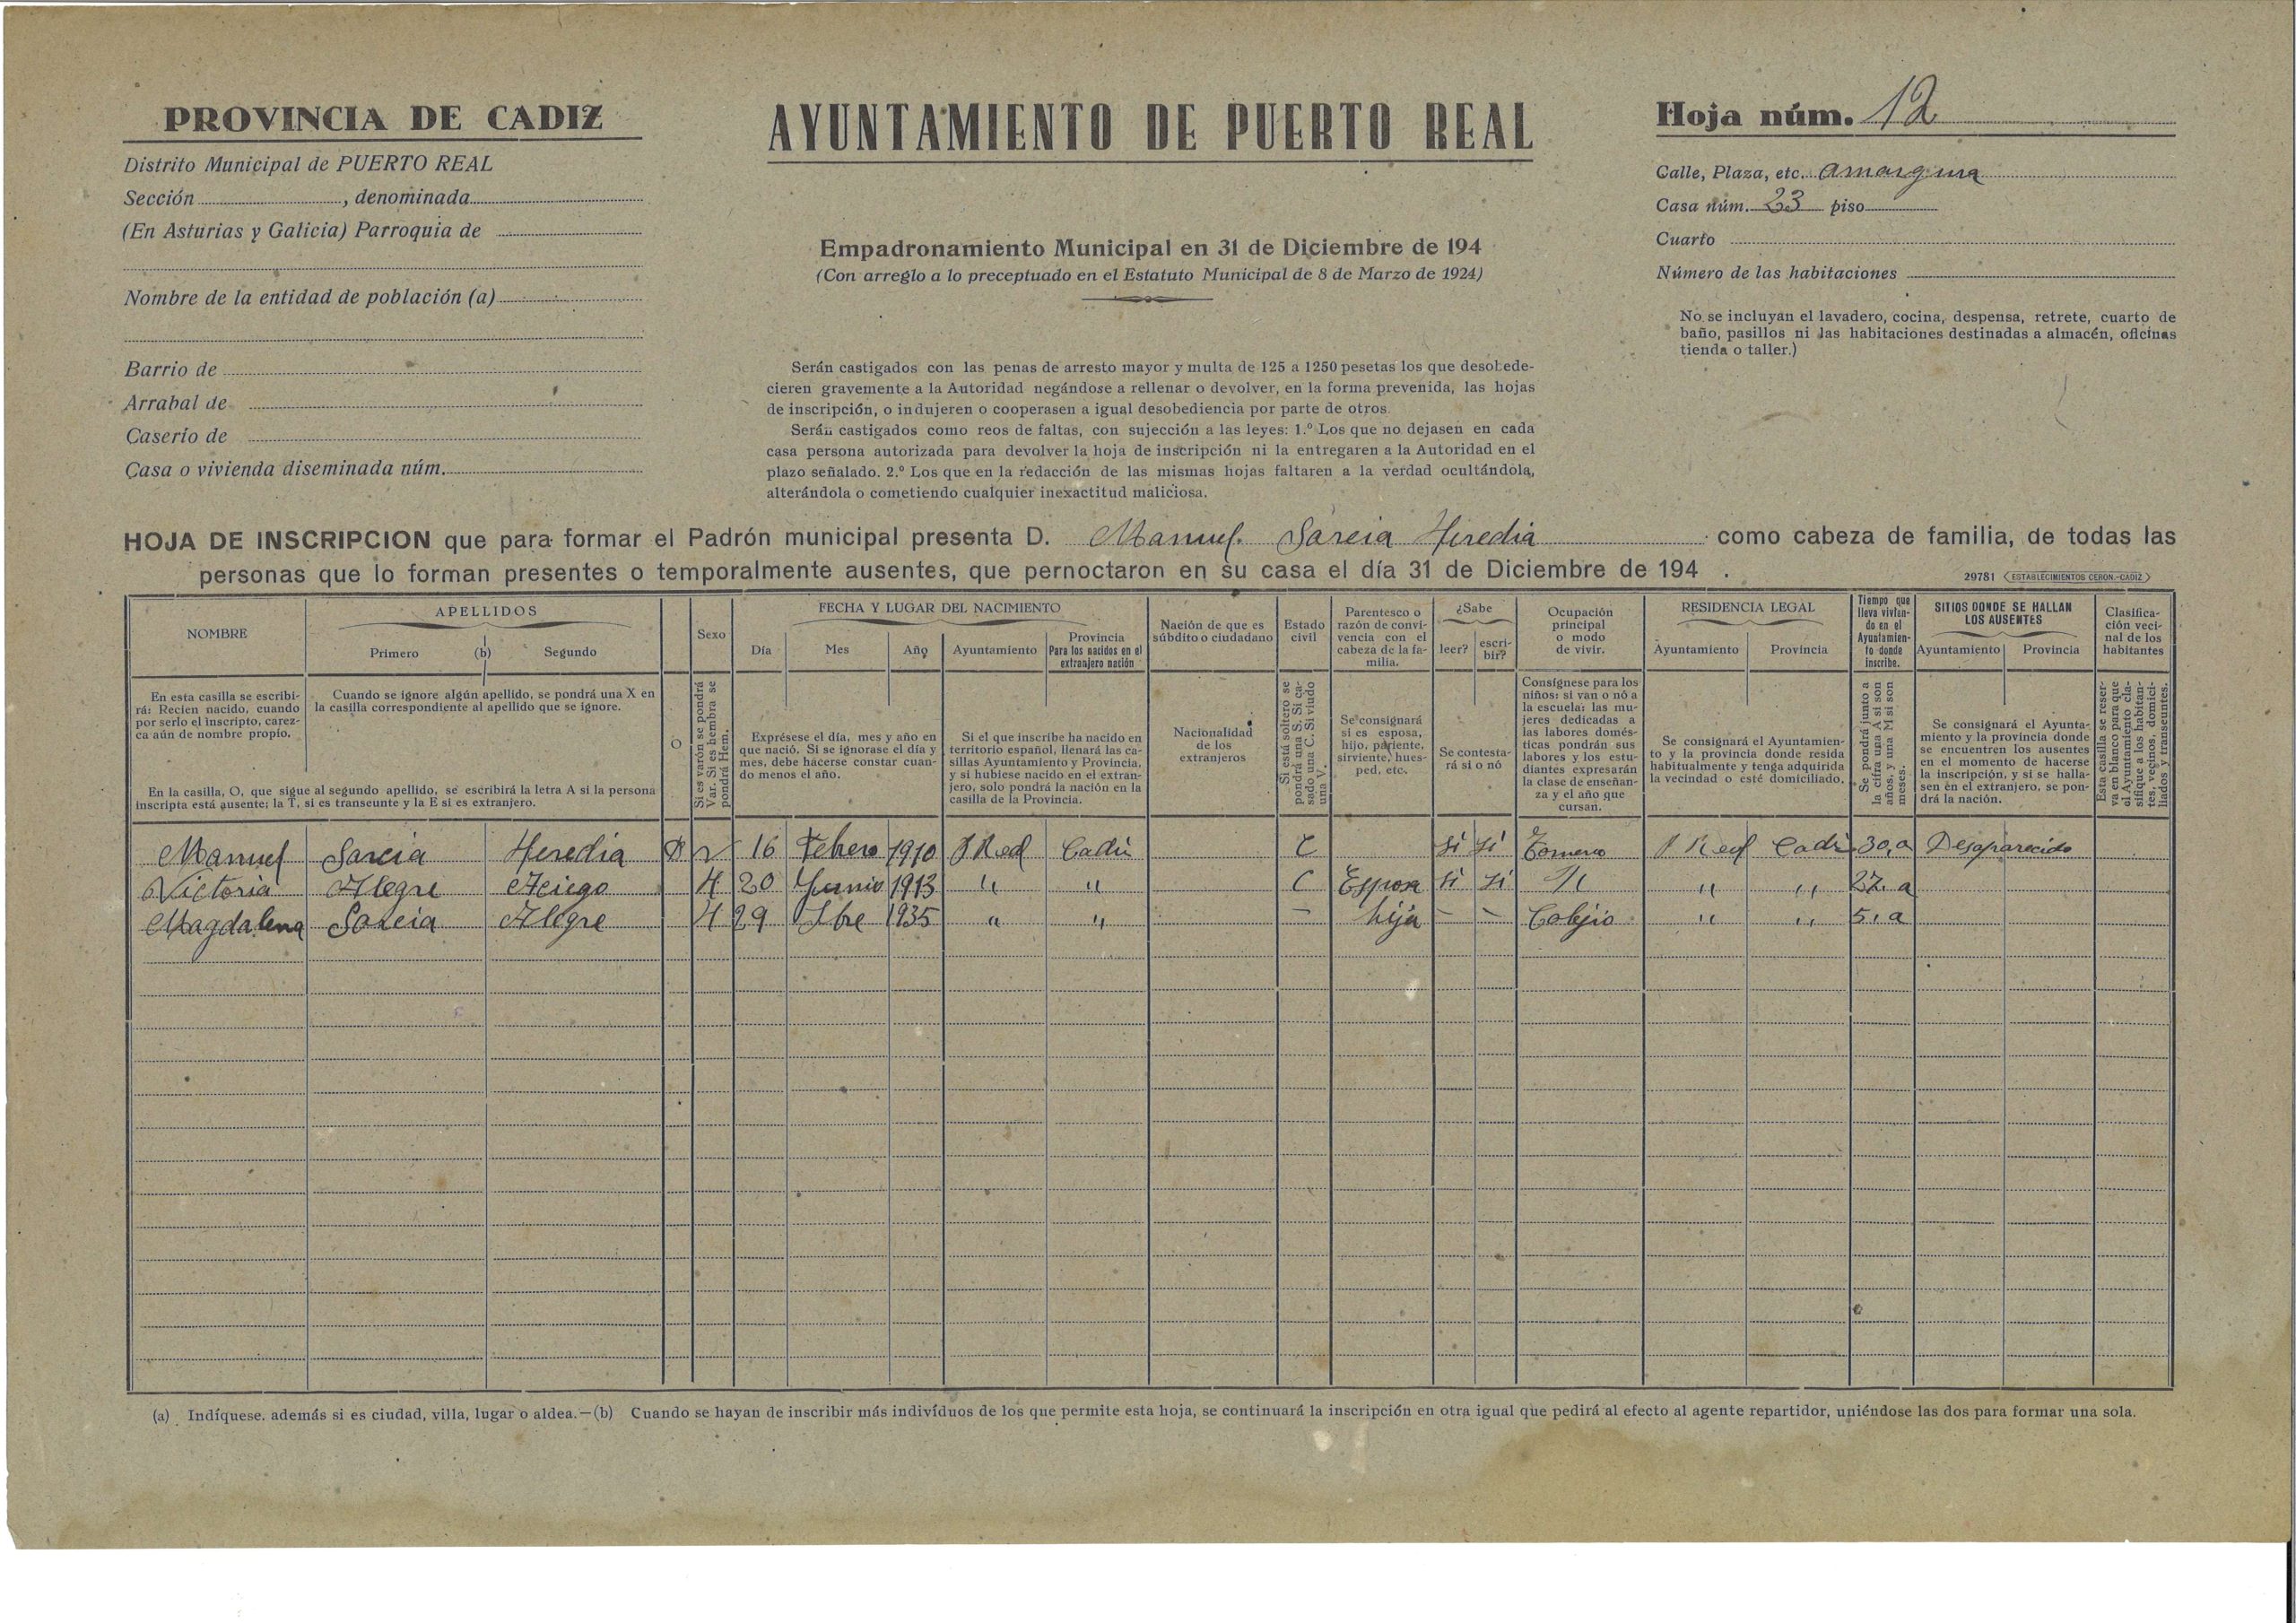 PROVINCIA DE CADIZ
Distrito Municipal de PUERTO REAL
Sección , denominada
(En Asturias y Galicia) Parroquia de
Nombre de la entidad de población (a)
Barrio de
Arrabal de
Caserío de
Casa o vivienda diseminada núm.
AYUNTAMIENTO DE PUERTO REAL
Empadronamiento Municipal en 31 de Diciembre de 194
(Con arreglo a lo preceptuado en el Estatuto Municipal de 8 de Marzo de 1924)
Serán castigados con las penas de arresto mayor y multa de 125 a 1250 pesetas los que desobede-
cieren gravemente a la Autoridad negándose a rellenar o devolver, en la forma prevenida, las hojas
de inscripción, o indujeren o cooperasen a igual desobediencia por parte de otros.
Serán castigados como reos de faltas, con sujección a las leyes: 1.º Los que no dejasen en cada
casa persona autorizada para devolver la hoja de inscripción ni la entregaren a la Autoridad en el
plazo señalado. 2.º Los que en la redacción de las mismas hojas faltaren a la verdad ocultándola,
alterándola o cometiendo cualquier inexactitud maliciosa.
Hoja núm. 12
Calle, Plaza, etc. amargura
Casa núm. 23 piso
Cuarto
Número de las habitaciones
No se incluyan el lavadero, cocina, despensa, retrete, cuarto de
baño, pasillos ni las habitaciones destinadas a almacén, oficinas
tienda o taller.)
HOJA DE INSCRIPCION que para formar el Padrón municipal presenta D. Manuel Garcia Heredia como cabeza de familia, de todas las
personas que lo forman presentes o temporalmente ausentes, que pernoctaron en su casa el día 31 de Diciembre de 194 .
29781 (ESTABLECIMIENTOS CERON.-CADIZ)
NOMBRE
APELLIDOS
Primero (b) Segundo
Sexo
FECHA Y LUGAR DEL NACIMIENTO
Día Mes Año Ayuntamiento
Provincia
Para los nacidos en el
extranjero nación
Nación de que es
súbdito o ciudadano
Estado
civil
Parentesco o
razón de convi-
vencia con el
cabeza de la fa-
milia.
¿Sabe
leer? escri-
bir?
Ocupación
principal
o modo
de vivir.
RESIDENCIA LEGAL
Ayuntamiento Provincia
Tiempo que
lleva vivien-
do en el
Ayuntamien-
to donde
inscribe.
SITIOS DONDE SE HALLAN
LOS AUSENTES
Ayuntamiento Provincia
Clasifica-
ción veci-
nal de los
habitantes
En esta casilla se escribi-
rá: Recien nacido, cuando
por serlo el inscripto, carez-
ca aún de nombre propio.
Cuando se ignore algún apellido, se pondrá una X en
la casilla correspondiente al apellido que se ignore.
En la casilla, O, que sigue al segundo apellido, se escribirá la letra A si la persona
inscripta está ausente; la T, si es transeunte y la E si es extranjero.
O
Si es varón se pondrá
Var. Si es hembra se
pondrá Hem.
Exprésese el día, mes y año en
que nació. Si se ignorase el día y
mes, debe hacerse constar cuan-
do menos el año.
Si el que inscribe ha nacido en
territorio español, llenará las ca-
sillas Ayuntamiento y Provincia,
y si hubiese nacido en el extran-
jero, solo pondrá la nación en la
casilla de la Provincia.
Nacionalidad
de los
extranjeros
Si está soltero se
pondrá una S. Si ca-
sado una C. Si viudo
una V.
Se consignará
si es esposa,
hijo, pariente,
sirviente, hues-
ped, etc.
Se contesta-
rá si o nó
Consígnese para los
niños: si van o nó a
la escuela: las mu-
jeres dedicadas a
las labores domés-
ticas pondrán sus
labores y los estu-
diantes expresarán
la clase de enseñan-
za y el año que
cursan.
Se consignará el Ayuntamien-
to y la provincia donde resida
habitualmente y tenga adquirida
la vecindad o esté domiciliado.
Se pondrá junto a
la cifra una A si son
años, y una M si son
meses.
Se consignará el Ayunta-
miento y la provincia donde
se encuentren los ausentes
en el momento de hacerse
la inscripción, y si se halla-
sen en el extranjero, se pon-
drá la nación.
Esta casilla se reser-
va en blanco para que
el Ayuntamiento cla-
sifique a los habitan-
tes, vecinos, domici-
liados y transeuntes.
Manuel Garcia Heredia v 16 Febrero 1910 P Real Cadiz C si si P Real Cadiz 30,a Desaparecido
Victoria Alegre H 20 Junio 1913 " " C Esposa si si " " 27,a
Magdalena Garcia Alegre H 29 1935 " " - hija - - Colejio " " 5,a
(a) Indíquese. además si es ciudad, villa, lugar o aldea.—(b) Cuando se hayan de inscribir más indivíduos de los que permite esta hoja, se continuará la inscripción en otra igual que pedirá al efecto al agente repartidor, uniéndose las dos para formar una sola.